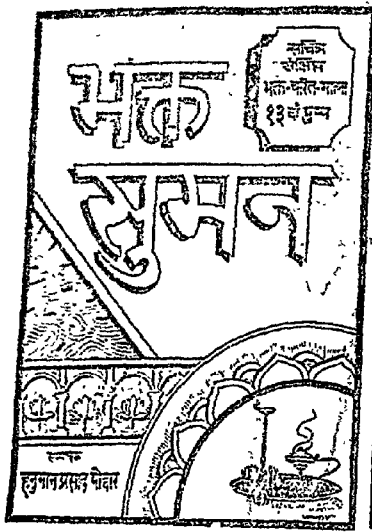 भक्त
सुमन
सचित्र
संक्षिप्त
भक्त-चरित-माला
१३ वाँ पुष्प
हनुमानप्रसाद पोद्दार